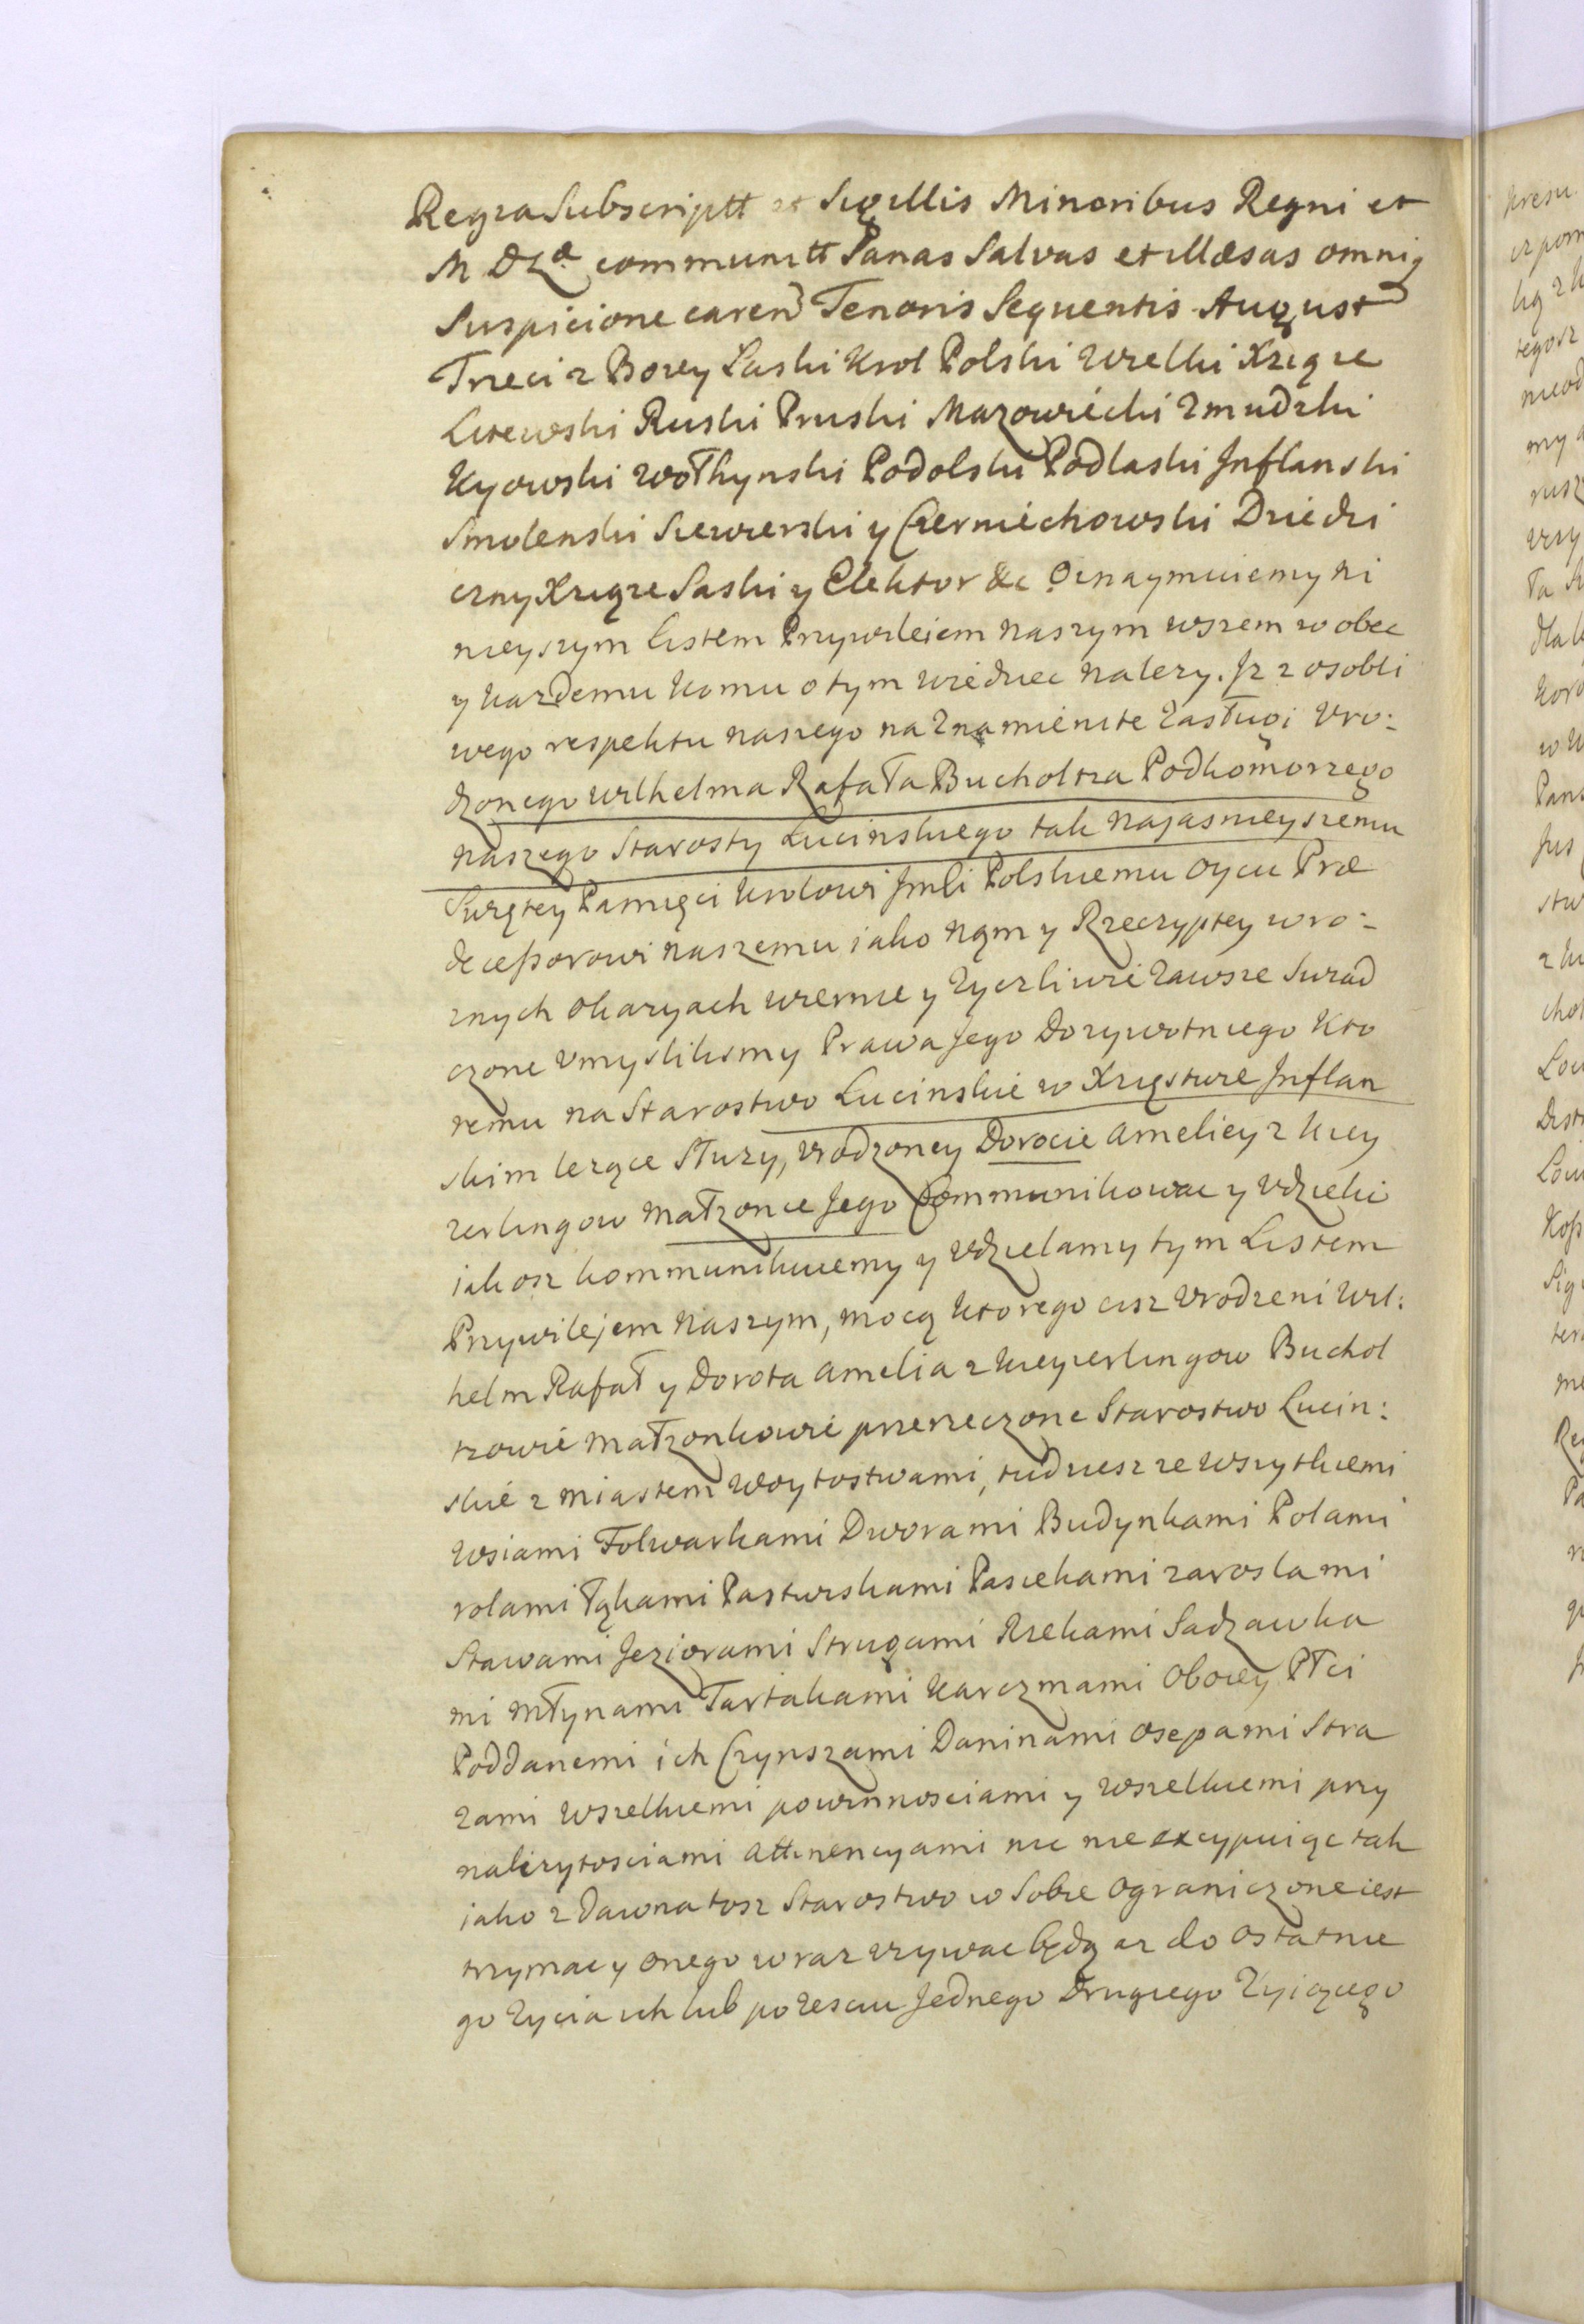 Regia Subscriptt et Sigillis Minoribus Regni et
M D L a communitt Sanas Salvas et illæsas omniq
Suspicione caren Tenoris Sequentis August
Trzeci z Bozey Laski Krol Polski Wielki Xiąze
Litewski Ruski Pruski Mazowiecki Zmudzki
Kyowski Wołhynski Podolski Podlaski Inflanski
Smolenski Siewierski y Czerniechowski Dziedzi
czny Xiąze Saski y Elektor &c Oznaymuiemy ni
nieyszym Listem Przywilejem naszym wszem w obec
y kazdemu komu o tym wiedziec nalezy. Jz z osobli
wego respektu naszego na Znamienite Zasługi Vro:
dzonego Wilhelma Rafała Bucholtza Podkomorzego
naszego Starosty Lucinskiego tak Najasnieyszemu
Swiętey Pamięci Krolowi Jmći Polskiemu oycu Præ
decessorowi naszemu jako nąm y Rzeczyptey w ro:
znych okazyach wiernie y Zyczliwie Zawsze Swiad
czone Vmyslilismy Prawa Jego Dozywotniego Kto
remu na Starostwo Lucinskie w Xięstwie Inflan
skim lezące słuzy, Vrodzoney Dorocie Ameliey z Kiey
zerlingow małzonce Jego Communikowac y Vdzielic
jakosz kommunikuiemy y Vdzielamy tym Listem
Przywilejem Naszym, mocą ktorego cisz Vrodzeni Wil:
helm Rafał y Dorota Amelia z Kieyzerlingow Buchol
tzowie małzonkowie przerzeczone Starostwo Lucin:
skie z miastem Woytostwami, tudziesz ze wszytkiemi
Wsiami Folwarkami Dworami Budynkami Polami
rolami łąkami Pastwiskami Pasiekami zaroslami
Stawami Jeziorami Strugami Rzekami Sadzawka
mi młynami Tartakami Karczmami Oboiey Płci
Poddanemi ich Czynszami Daninami Osepami Stra
zami wszelkiemi powinnosciami y wszelkiemi przy
nalezytosciami Attinencyami nic nie excypuiąc tak
jako z dawna tosz Starostwo w Sobie Ograniczone iest
trzymac y onego wraz vzywac będą az do Ostatnie
go Zycia ich lub po Zesciu Jednego Drugiego Zyiącego